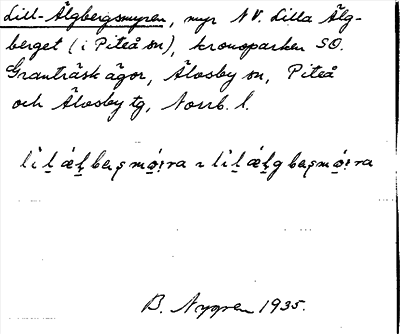 Lill-Älgbergsmyren, myr NV. Lilla Älg-
berget (i Piteå sn), kronoparken SO.
Granträsk ägor, Älvsby sn, Piteå
och Älvsby tg, Norrb. l.
B. Nygren 1935.